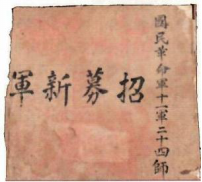 國民革命軍十一軍二十四師
招募新軍